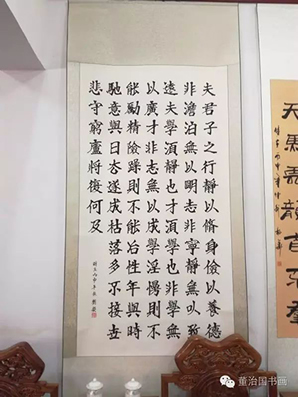 夫君子之行靜以脩身儉以養德
非澹泊無以明志非寧靜無以致
遠夫學須靜也才須學也非學無
以廣才非志無以成學淫慢則不
能勵精險躁則不能冶性年與時
馳意與日去遂成枯落多不接世
悲守窮廬將復何及
天馬
董治国书画